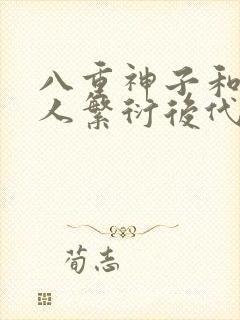 八重神子和
人繁衍後代
荀志